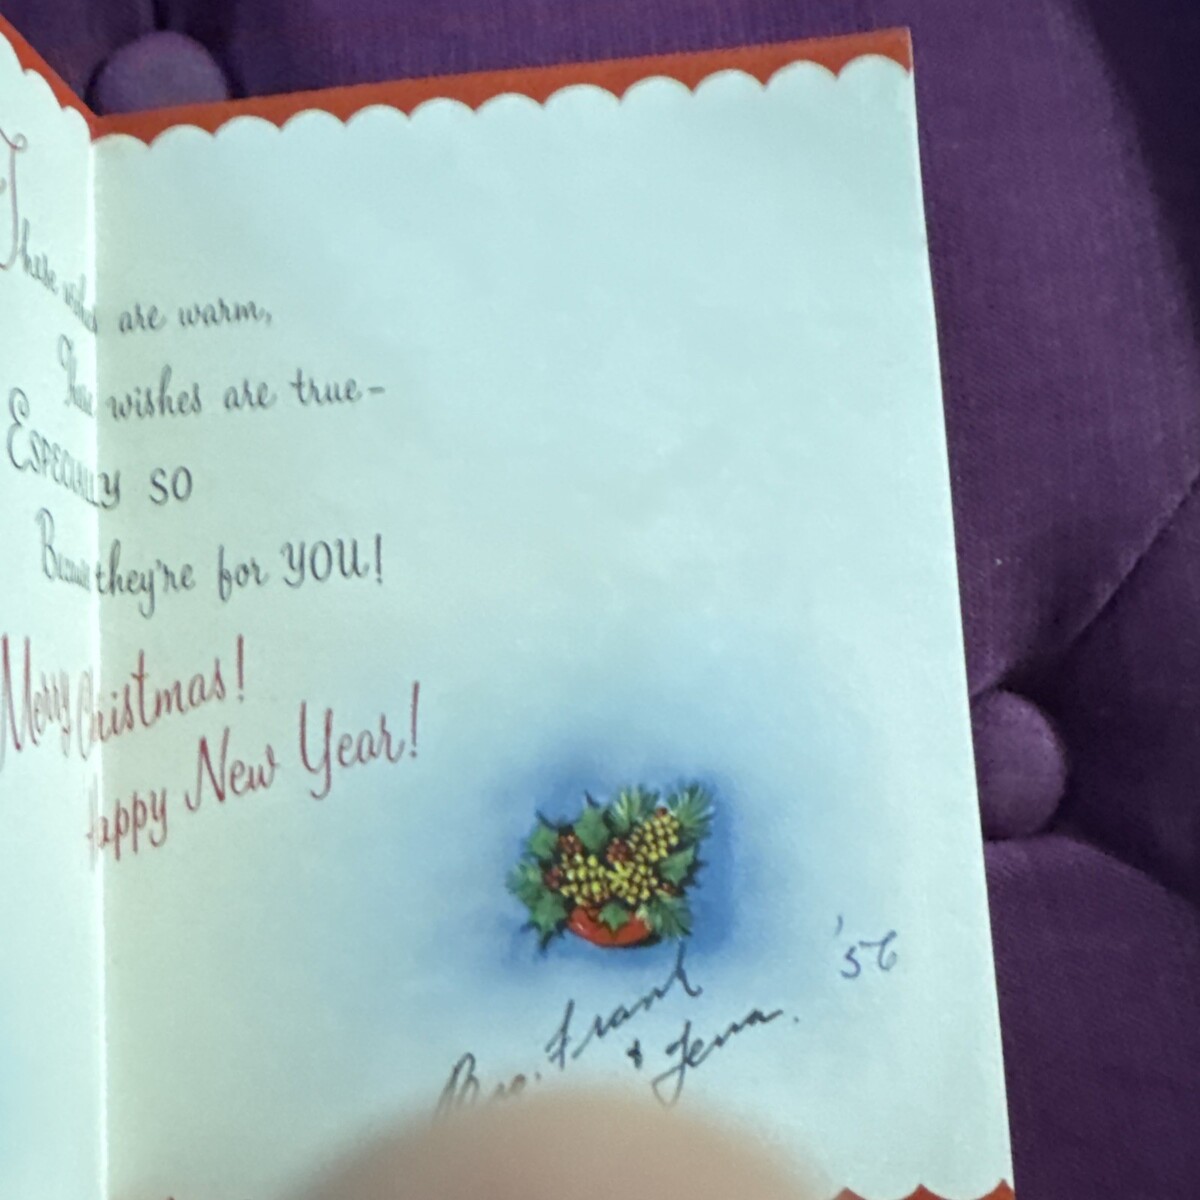 These wishes are warm,
These wishes are true-
ESPECIALLY SO
Because they're for YOU!
Merry Christmas!
Happy New Year!
'56
Bro. Frank
&